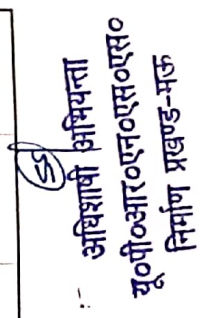 अधिशासी अभियन्ता
यू०पी०आर०एन०एस०एस०
निर्माण प्रखण्ड-मऊ